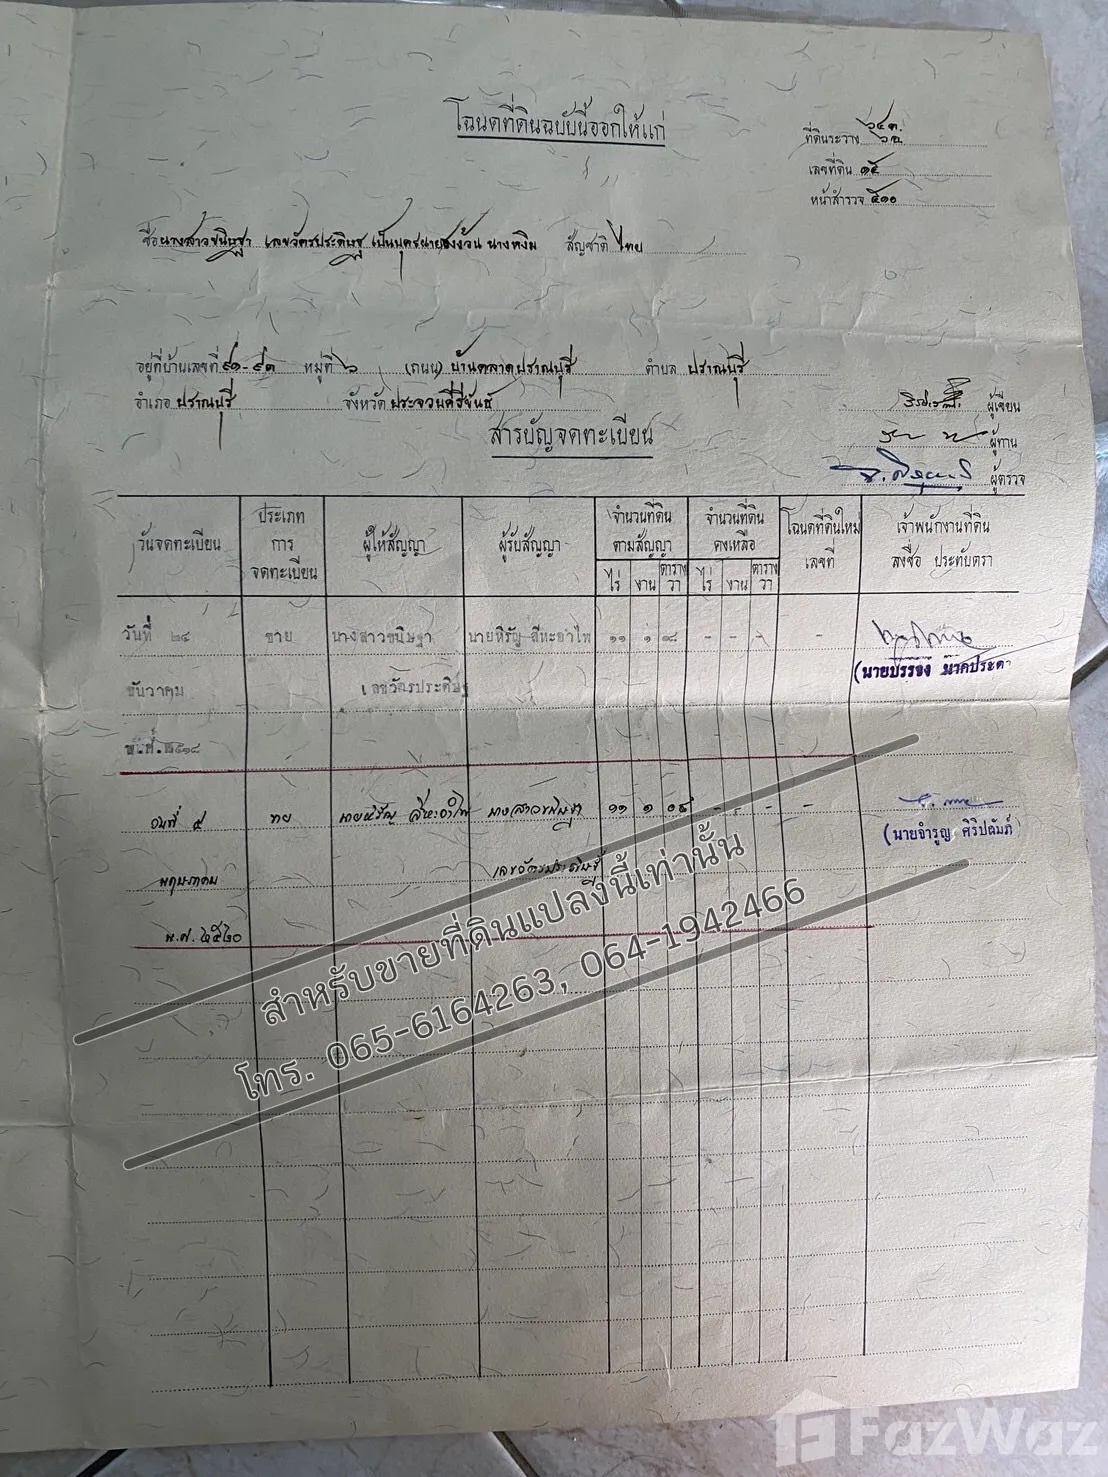 โฉนดที่ดินฉบับนี้ออกให้แก่
ที่ดินระวาง
เลขที่ดิน ๑๕
หน้าสำรวจ ๕๑๐
ชื่อ นางสาวขนิษฐา เลขวัตรประดิษฐ เป็นบุตรนายสงวน นาง สัญชาติ ไทย
อยู่ที่บ้านเลขที่ ๙๑-๙๓ หมู่ที่ ๖ (ถนน) บ้านตลาดปราณบุรี ตำบล ปราณบุรี
อำเภอ ปราณบุรี จังหวัด ประจวบคีรีขันธ์ ผู้เขียน
สารบัญจดทะเบียน ผู้ทาน
ผู้ตรวจ
วันจดทะเบียน ประเภทการจดทะเบียน ผู้ให้สัญญา ผู้รับสัญญา จำนวนที่ดินตามสัญญา จำนวนที่ดินคงเหลือ โฉนดที่ดินใหม่เลขที่ เจ้าพนักงานที่ดินลงชื่อ ประทับตรา
ไร่ งาน ตารางวา ไร่ งาน ตารางวา
วันที่ ๒๔ ขาย นางสาวขนิษฐา นายหิรัญ สีหะอำไพ ๑๑ ๑ ๐๘ - - - -
ธันวาคม เลขวัตรประดิษฐ (นายบรรจง นาคประดา
พ.ศ. ๒๕๑๘
วันที่ ๙ ขาย นายหิรัญ สีหะอำไพ นางสาวขนิษฐา ๑๑ ๑ ๐๘ - - - -
(นายจำรูญ ศิริปลัมภ์)
พฤษภาคม เลขวัตรประดิษฐ์
พ.ศ. ๒๕๒๐
สำหรับขายที่ดินแปลงนี้เท่านั้น
โทร. 065-6164263, 064-1942466
FazWaz